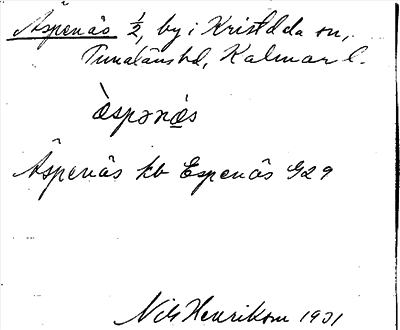 Äspenäs 1/2, by i Kristdala sn,
Tunaläns hd, Kalmar l.
ä̀spənä̲s
Äspenäs kb Espenäs G29
Nils Henrikson 1931